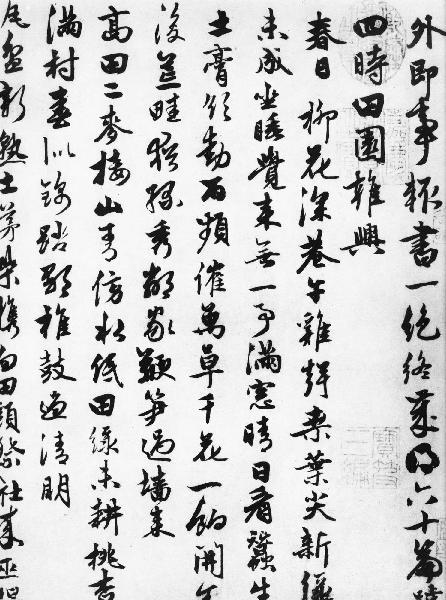 外即事輒書一絕終歲得六十篇號
四時田園雜興
春日 柳花深巷午雞聲桑葉尖新綠
未成坐睡覺來無一事滿窓晴日看蠶生
土膏欲動雨頻催萬草千花一餉開舍
後荒畦猶綠秀鄰家鞭笋過墻來
高田二麥接山青傍水低田綠未耕桃杏
滿村春似錦踏歌椎鼓過清明
盆新熟土茅柴攜向田頭祭社來巫